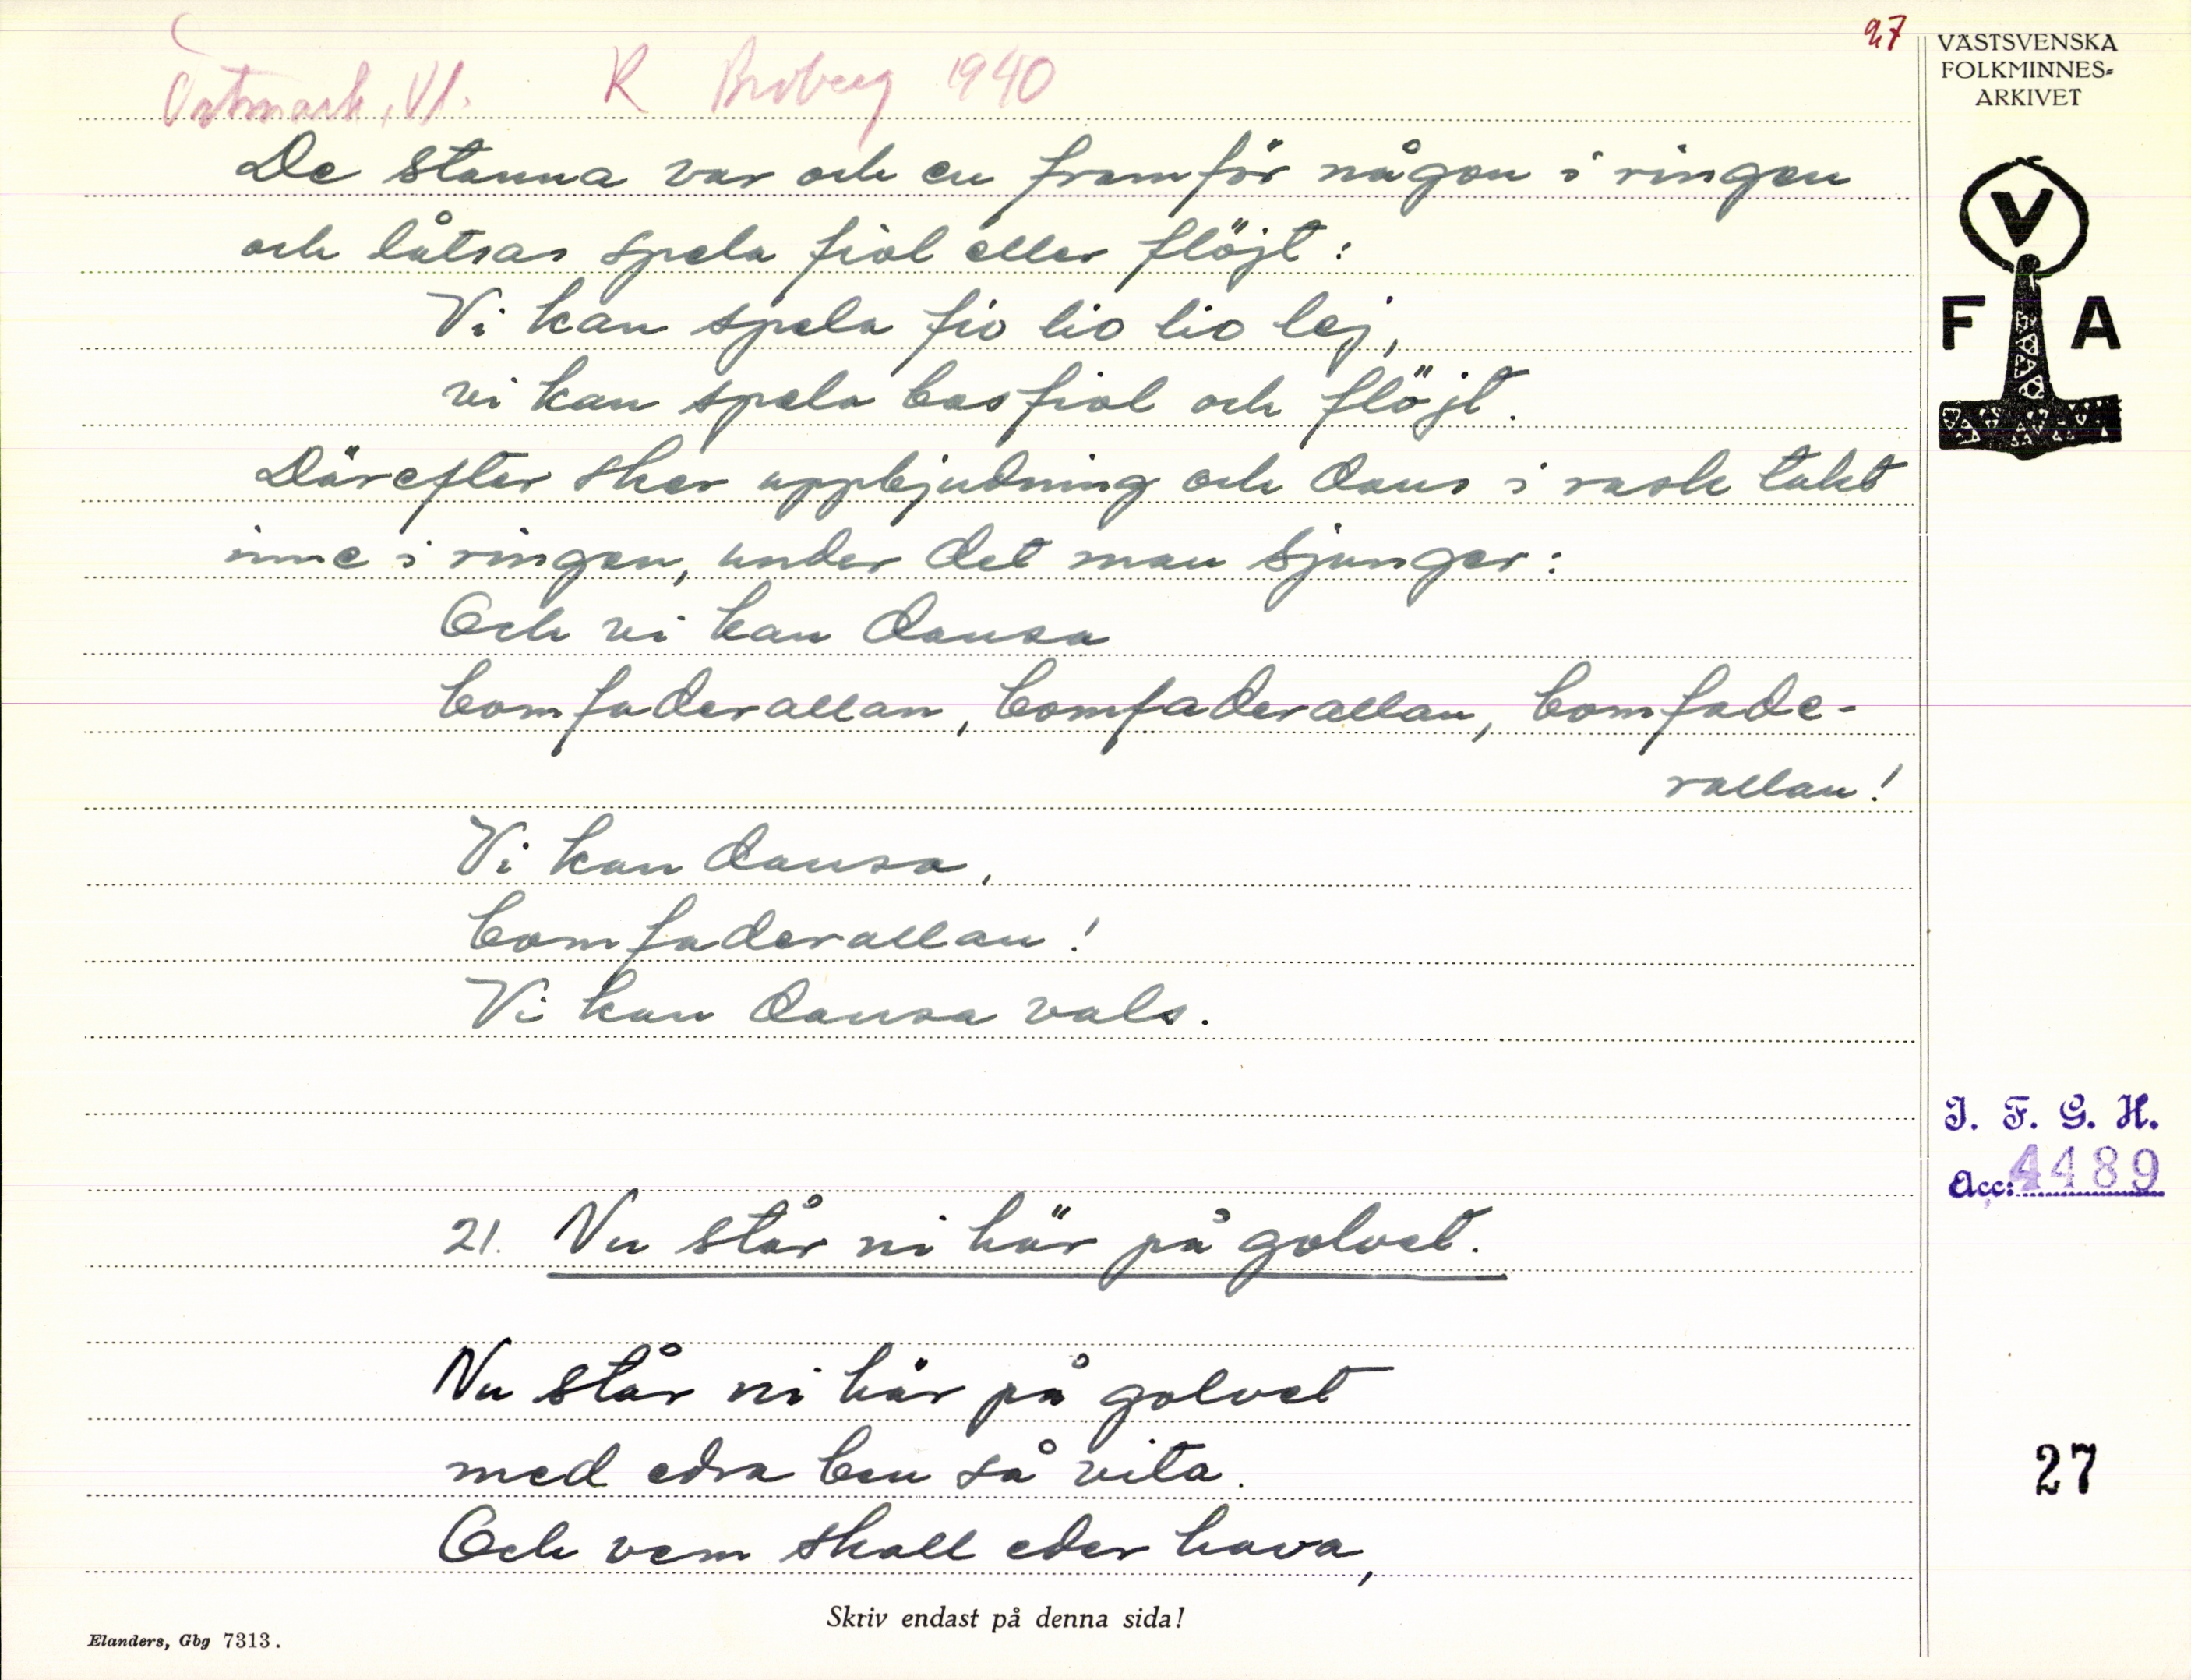 27
Östmark, Vl. R Broberg 1940
De stanna var och en framför någon i ringen
och låtsas spela fiol eller flöjt:
Vi kan spela fio lio lio lej,
vi kan spela basfiol och flöjt.
Därefter sker uppbjudning och dans i rask takt
inne i ringen, under det man sjunger:
Och vi kan dansa
bomfaderallan, bomfaderallan, bomfade-
rallan!
Vi kan dansa,
bomfaderallan!
Vi kan dansa vals.
21. Nu står ni här på golvet.
Nu står ni här på golvet
med edra ben så vita.
Och vem skall eder hava,
Skriv endast på denna sida!
Elanders, Gbg 7313.
VÄSTSVENSKA
FOLKMINNES-
ARKIVET
V
F A
I. F. G. H.
Acc: 4489
27